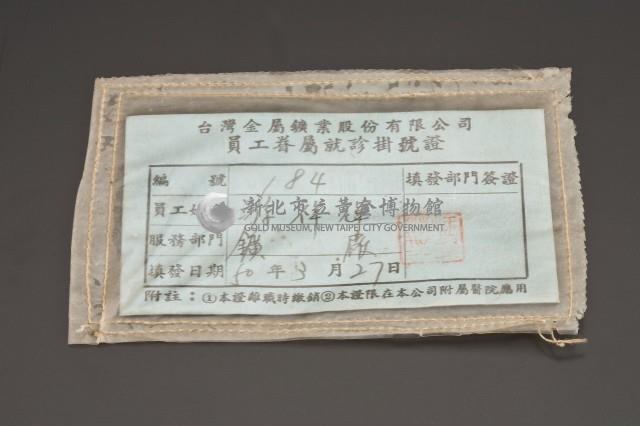 台灣金屬鑛業股份有限公司
員工眷屬就診掛號證
編號 184 填發部門簽證
員工姓
新北市立黃金博物館
GOLD MUSEUM, NEW TAIPEI CITY GOVERNMENT
服務部門 鑛 廠
填發日期 50年3月27日
附註：①本證離職時繳銷②本證限在本公司附屬醫院應用